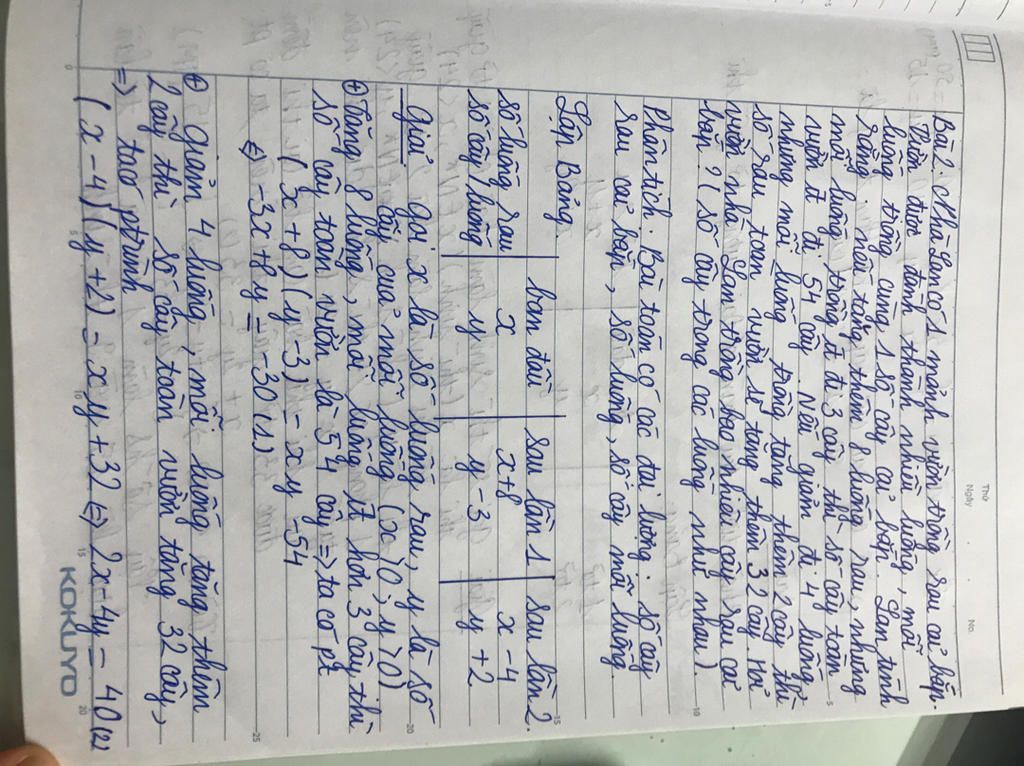 Thứ
Ngày
No.
Bài 2. Nhà Lan có 1 mảnh vườn trồng rau cải bắp.
Vườn được đánh thành nhiều luống, mỗi
luống trồng cùng 1 số cây cải bắp. Lan tính
rằng: nếu tăng thêm 8 luống rau, nhưng
mỗi luống trồng ít đi 3 cây thì số cây toàn
vườn ít đi 54 cây. Nếu giảm đi 4 luống,
nhưng mỗi luống trồng tăng thêm 2 cây thì
số rau toàn vườn sẽ tăng thêm 32 cây. Hỏi
vườn nhà Lan trồng bao nhiêu cây rau cải
bắp? (số cây trong các luống như nhau).
Phân tích. Bài toán có các đại lượng. số cây
rau cải bắp, số luống, số cây mỗi luống.
Lập Bảng.
ban đầu sau lần 1 sau lần 2.
số luống rau x x+8 x-4
số cây/luống y y-3 y+2
Giải gọi x là số luống rau, y là số
cây của mỗi luống (x>0; y>0)
⊕ Tăng 8 luống, mỗi luống ít hơn 3 cây thì
số cây toàn vườn là 54 cây => ta có pt
(x+8)(y-3) = xy -54
⇔ -3x+8y = -30 (1)
⊕ Giảm 4 luống, mỗi luống tăng thêm
2 cây thì số cây toàn vườn tăng 32 cây,
=> ta có ptrình
(x-4)(y+2) = xy+32 ⇔ 2x-4y = 40 (2)
KOKUYO